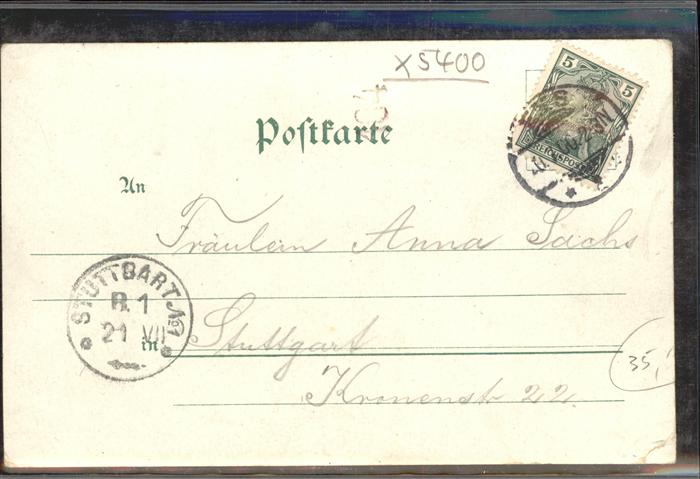 x5400
5 5
REICHSPOST
Postkarte
An
Fräulein Anna Sachs
STUTTGART No 1
B. 1
21 VII
in Stuttgart
Kronenstr 22.
35,